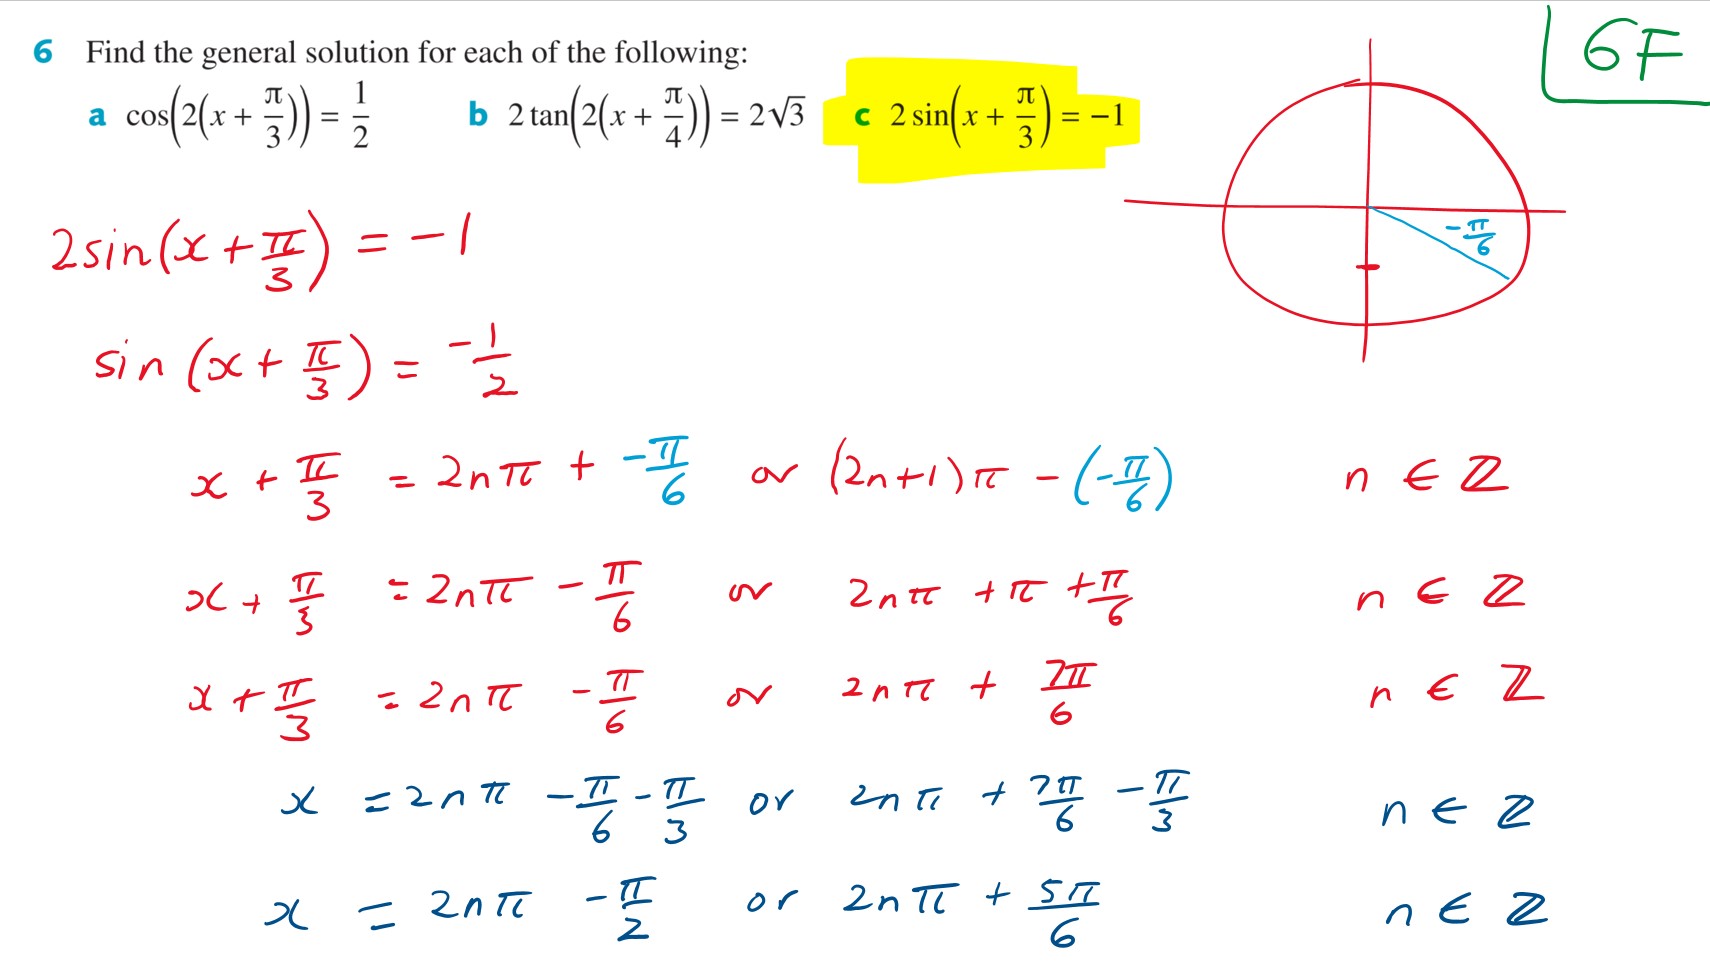 6F
6 Find the general solution for each of the following:
a cos(2(x + π/3)) = 1/2 b 2 tan(2(x + π/4)) = 2√3 c 2 sin(x + π/3) = −1
-π/6
2sin(x + π/3) = -1
sin (x + π/3) = -1/2
x + π/3 = 2nπ + -π/6 or (2n+1)π - (-π/6) n ∈ ℤ
x + π/3 = 2nπ - π/6 or 2nπ + π + π/6 n ∈ ℤ
x + π/3 = 2nπ - π/6 or 2nπ + 7π/6 n ∈ ℤ
x = 2nπ - π/6 - π/3 or 2nπ + 7π/6 - π/3 n ∈ ℤ
x = 2nπ - π/2 or 2nπ + 5π/6 n ∈ ℤ